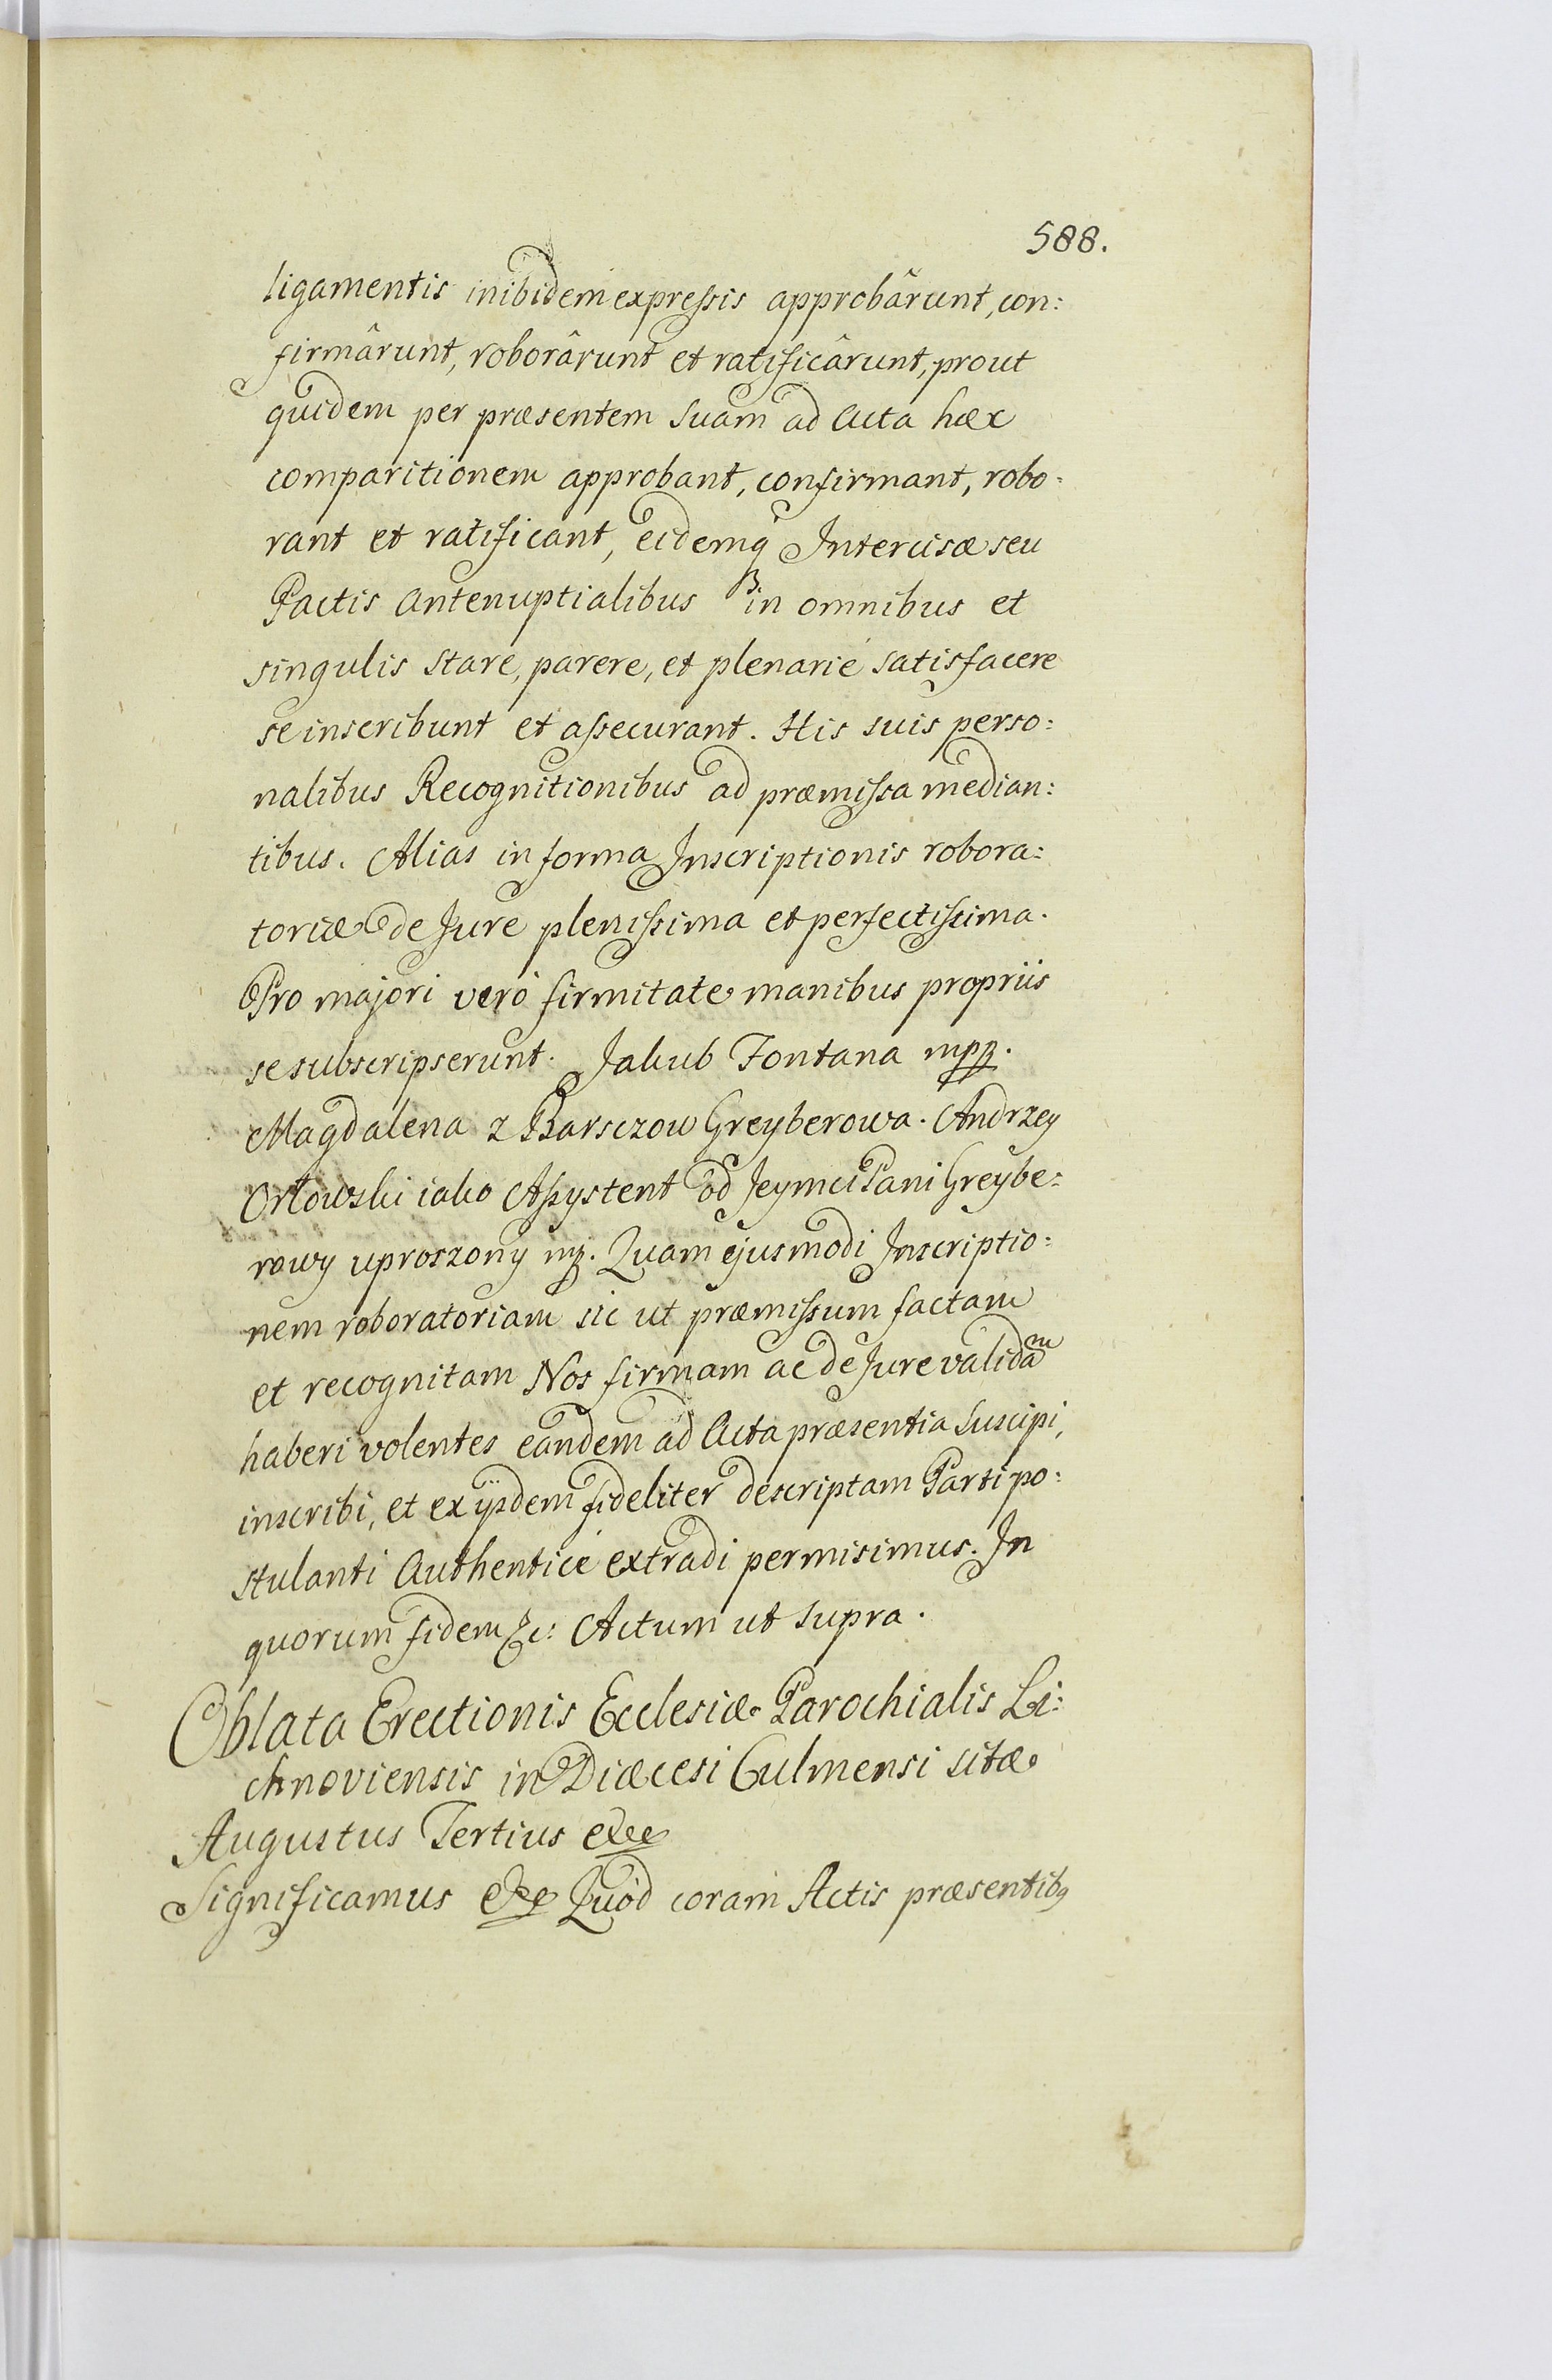 588.
ligamentis inibidem expressis approbârunt, con:
firmârunt, roborârunt et ratificârunt, prout
quidem per præsentem suam ad Acta hæc
comparitionem approbant, confirmant, robo:
rant et ratificant, eidemq Intercisæ seu
Pactis Antenuptialibus in omnibus et
singulis stare, parere, et plenarié satisfacere
se inscribunt et assecurant. His suis perso:
nalibus Recognitionibus ad præmissa median:
tibus. Alias in forma Inscriptionis robora:
toriæ de Jure plenissima et perfectissima.
Pro majori veró firmitate manibus propriis
se subscripserunt. Jakub Fontana mpp.
Magdalena z Barsczow Greyberowa. Andrzey
Orłowski iako Assystent od Jeymci Pani Greybe:
rowy uproszony mp. Quam ejusmodi Inscriptio:
nem roboratoriam sic ut præmissum factam
et recognitam Nos firmam ac de Jure validam
haberi volentes eandem ad Acta præsentia suscipi,
inscribi, et ex ijsdem fideliter descriptam Parti po:
stulanti Authenticé extradi permisimus. In
quorum fidem &c: Actum ut supra.
Oblata Erectionis Ecclesiæ Parochialis Li:
chnoviensis in Diæcesi Culmensi sitæ
Augustus Tertius &c
Significamus &c Quód coram Actis præsentibq